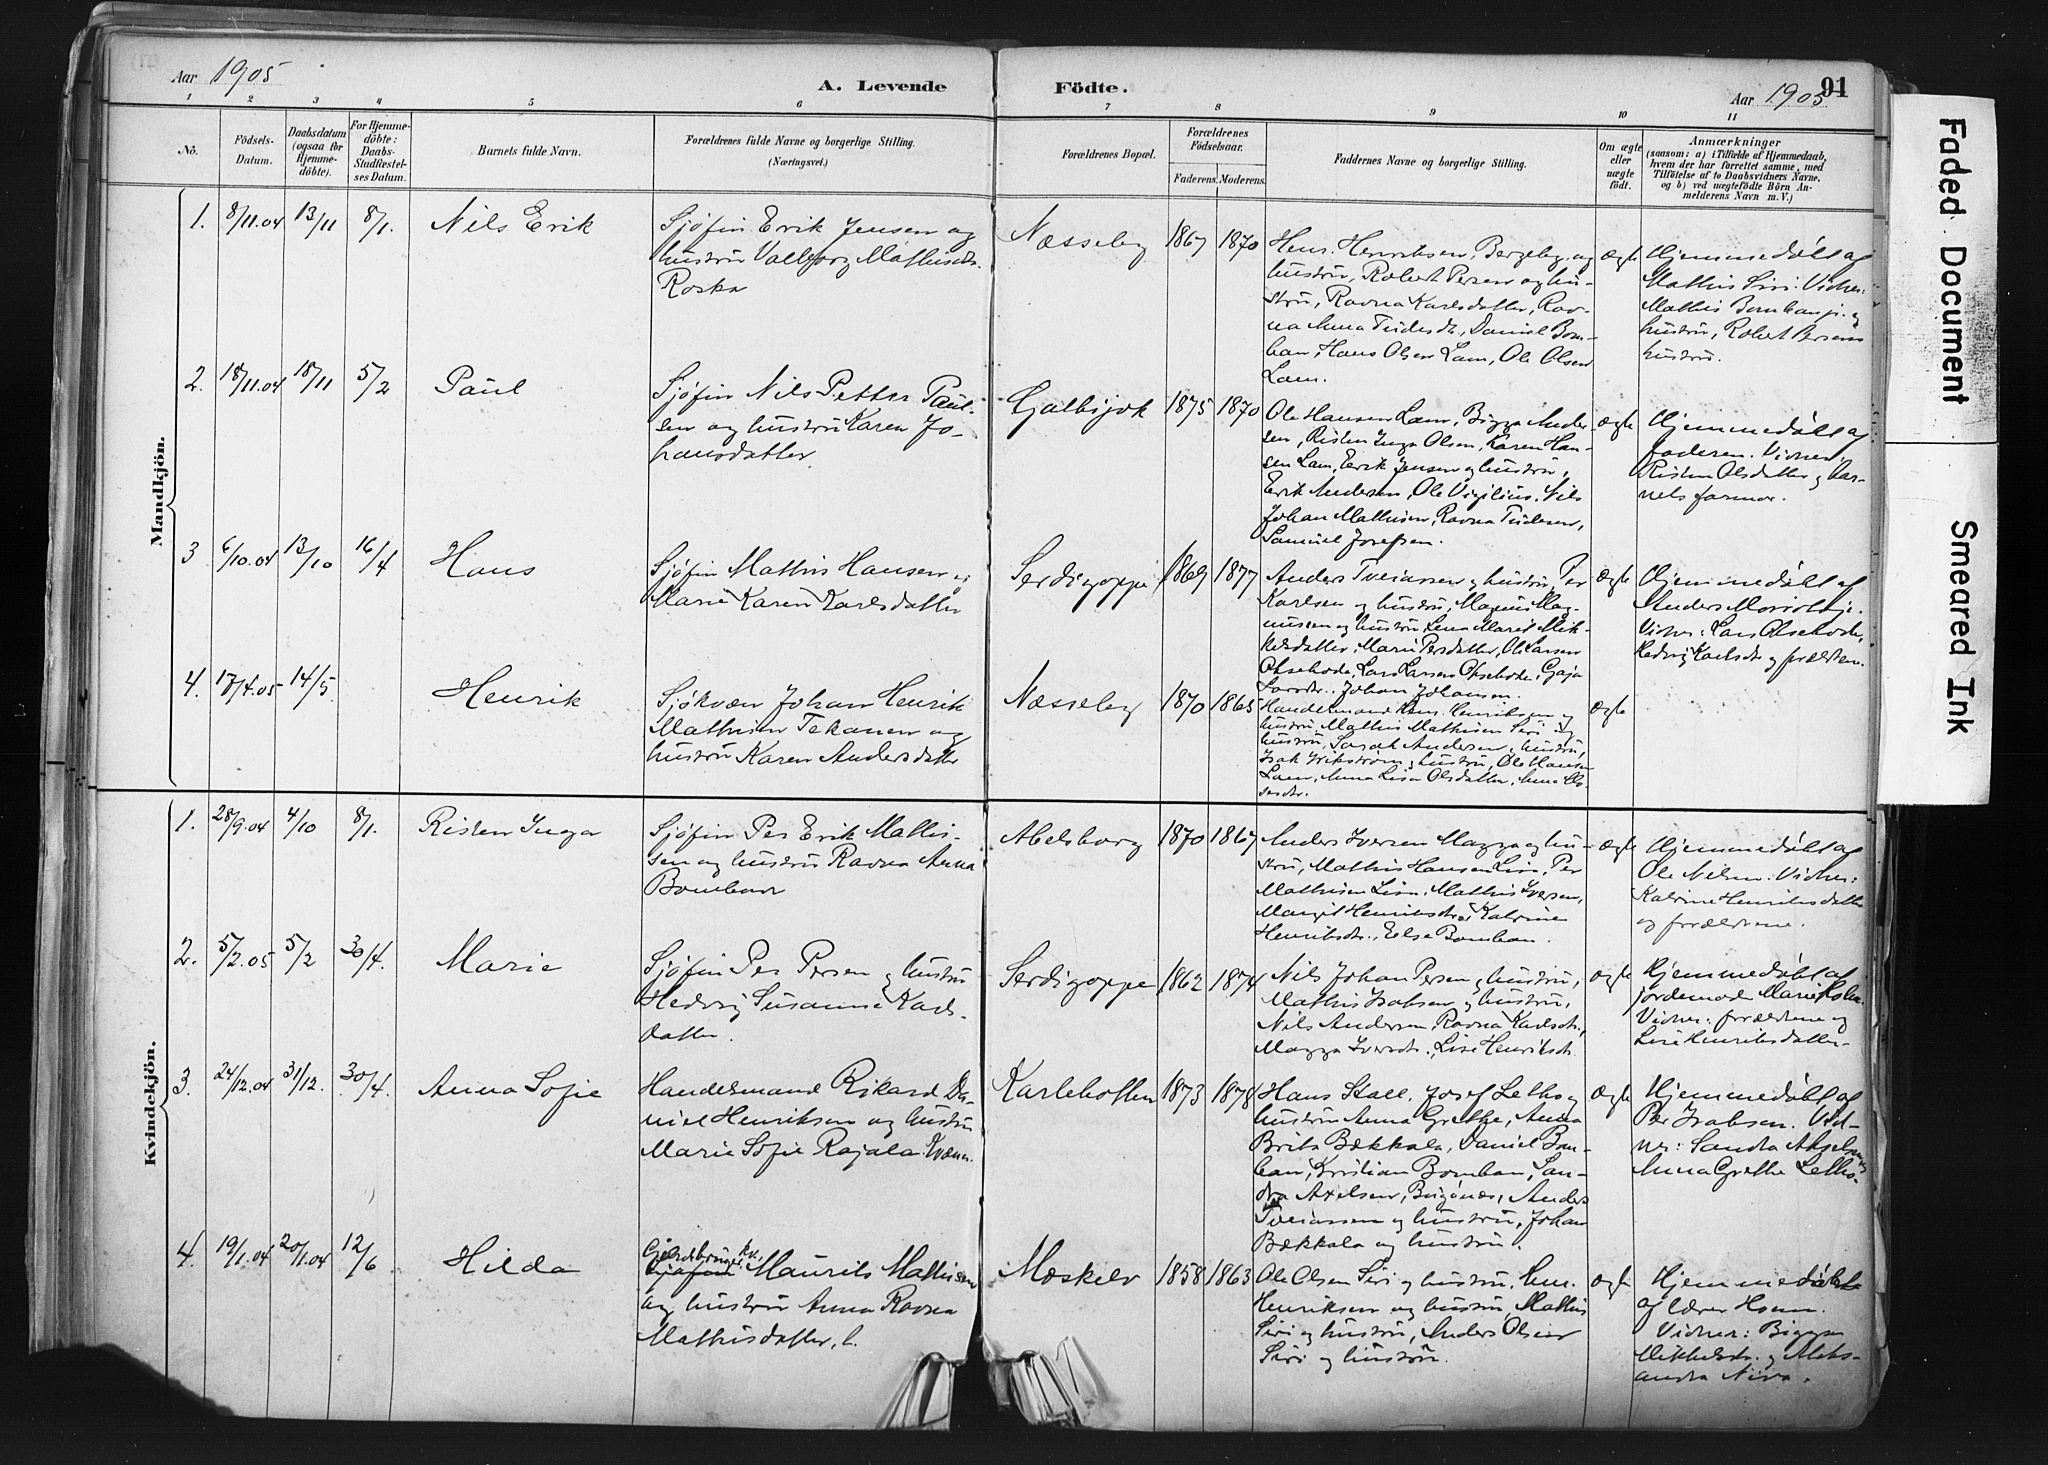 Aar 1905
A. Levende Födte.
Aar 1905
91
1 2 3 4 5 6 7 8 9 10 11
No.
Födsels-Datum.
Daabsdatum (ogsaa for Hjemme-döbte).
For Hjemme-döbte: Daabs-Stadfæstel-ses Datum.
Barnets fulde Navn.
Forældrenes fulde Navne og borgerlige Stilling.
(Næringsvei.)
Forældrenes Bopæl.
Forældrenes Födselsaar.
Faderens. Moderens.
Faddernes Navne og borgerlige Stilling.
Om ægte eller uægte födt.
Anmærkninger
(saasom: a) i Tilfælde af Hjemmedaab,
hvem der har forrettet samme, med
Tilföielse af to Daabsvidners Navne,
og b) ved uægtefödte Börn An-
melderens Navn m. V.)
Mandkjön.
1. 8/11.04 13/11 8/1. Nils Erik
Sjøfin Erik Jensen og
hustru Valborg Mathisdtr.
Roska
Næsseby 1867 1870
Hen. Henriksen, Bergeby, og
hustru, Robert Persen og hu-
stru, Ravna Karlsdatter, Rav-
na Anna Tudesdtr, Daniel Bom-
ban, Hans Olsen Lam, Ole Olsen
Lam.
ægte
Hjemmedøbt af
Mathis Siri. Vidner:
Mathis Bomban jr. og
hustru, Robert Persens
hustru.
2. 18/11.04 18/11 5/2 Paul
Sjøfin Nils Petter Paul-
sen og hustru Karen Jo-
hansdatter
Galbijok 1875 1870
Ole Hansen Lam, Bigga Ander-
sen, Risten Inga Olsen, Karen Han-
sen Lam, Erik Jensen og hustru,
Erik Andersen, Ole Vigilius, Nils
Johan Mathisen, Ravna Tudesen,
Samuel Josefsen.
ægte
Hjemmedøbt af
faderen. Vidner:
Risten Olsdatter og bar-
nets farmor.
3 6/10.04 13/10 16/4 Hans
Sjøfin Mathis Hansen og
Marie Karen Karlsdatter
Serdigoppe 1869 1877
Anders Tveiassen og hustru, Per
Karlsen og hustru, Magnus Mag-
nussen og hustru, Lena Marit Mik-
kelsdatter, Marie Persdatter, Ole Larsen
Larsdtr., Johan Johansen.
ægte
Hjemmedøbt af
Vidner: Lars
Hedvig Karlsdtr og forældrene.
4. 17/4.05 14/5 Henrik
Sjøkvæn Johan Henrik
Mathisen Tekanen og
hustru Karen Andersdatter
Næsseby 1870 1865
Handelsmand Hen. Henriksen og
hustru, Mathis Mathisen Siri og
hustru, Sarah Andersen, hustru,
Isak Wikstrøm og hustru, Ole Hansen
Lam, Anna Lisa Olsdatter, Anna
ægte
Kvindekjön.
1. 28/9.04 4/10 8/1. Risten Inga
Sjøfin Per Erik Mathis-
sen og hustru Ravna Anna
Bomban
Abelsborg 1870 1867
Anders Iversen Magga og hu-
stru, Mathis Hansen Lisa, Per
Mathisen Lisa, Mathis Iversen,
Margit Henriksdtr, Katrine
Henriksdtr., Else Bomban.
ægte
Hjemmedøbt af
Ole Nilsen. Vidner:
Katrine Henriksdatter
og forældrene.
2. 5/2.05 5/2 30/4. Marie
Sjøfin Per Persen og hustru
Hedvig Susanne Karls-
datter.
Serdigoppe 1862 1874
Nils Johan Persen og hustru,
Mathis Isaksen og hustru,
Nils Andersen, Ravna Karlsdtr.,
Magga Iversdtr., Lisa Henriksdtr.
ægte
Hjemmedøbt af
jordemoder Marie
Vidner: forældrene og
Lisa Henriksdatter.
3. 24/12.04 31/12. 30/4. Anna Sofie
Handelsmand Rikard Da-
niel Henriksen og hustru
Marie Sofie Rajala. Kvæner.
Karlebotten 1873 1878
Hans Stall, Josef Leths og
hustru Anna Grethe, Anna
Brita Bækkala, Daniel Bom-
ban, Kristian Bomban, San-
dra Axelsen, Bugønæs, Anders
Tveiassen og hustru, Johan
Bækkala og hustru.
ægte
Hjemmedøbt af
Per Isaksen. Vid-
ner: Sandra Akselsen og
Anna Grethe Leths.
4. 19/1.04 20/1.04 12/6 Hilda
Gjeldbruger, kv.
Maurits Mathisen
og hustru Anna Ravna
Mathisdatter, l.
Mæskelv 1858 1863
Ole Olsen Siri og hustru, Hen.
Henriksen og hustru, Mathis
Siri og hustru, Anders Olsen
Siri og hustru.
ægte
Hjemmedøbt
af lærer Honn.
Vidner: Bigga
Mikkelsdtr. og Aleks-
andra Niva.
Faded Document
Smeared Ink